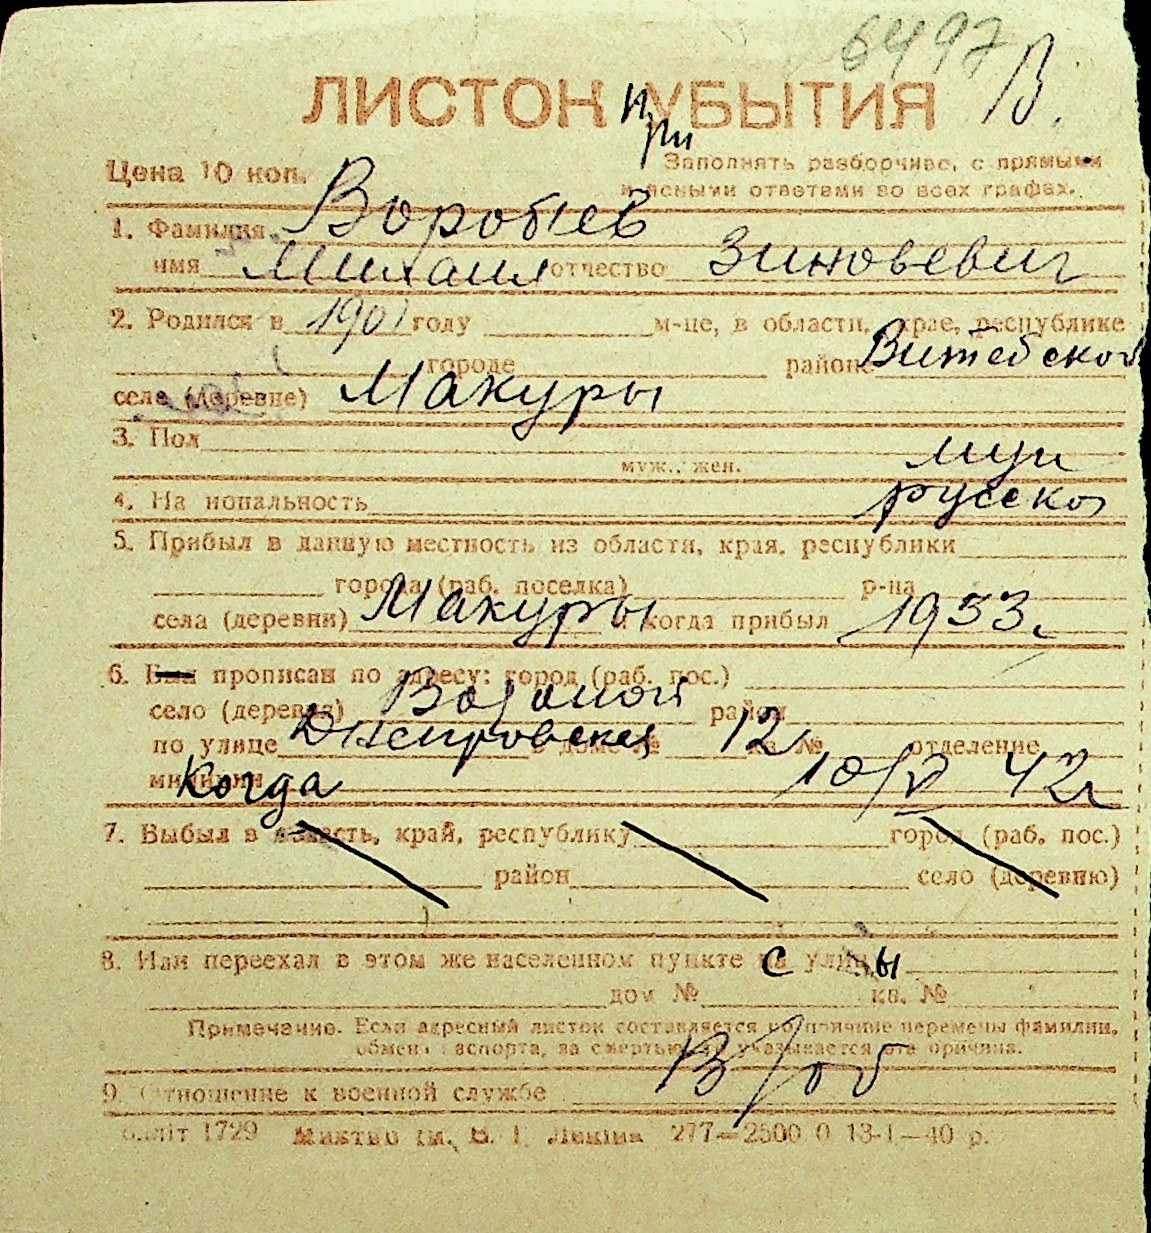 6497 В.
ЛИСТОК при УБЫТИЯ
Цена 10 коп. Заполнять разборчиво, с прямыми
и ясными ответами во всех графах.
1. Фамилия Воробьев
имя Михаил отчество Зиновьевич
2. Родился в 1901 году м-це, в области, крае, республике
городе районе Витебской
селе (деревне) Макуры
3. Пол муж
муж., жен.
4. На иональность русской
5. Прибыл в данную местность из области, края, республики
города (раб. поселка) р-на
села (деревни) Макуры и когда прибыл 1933 г
6. Был прописан по адресу: город (раб. пос.)
село (деревня) район
по улице Днепровская дом № 12 кв. № отделение
милиции Когда 10/V 42 г
7. Выбыл в область, край, республику город (раб. пос.)
район село (деревню)
8. Или переехал в этом же населенном пункте с улицы
дом № кв. №
Примечание. Если адресный листок составляется по причине перемены фамилии,
обмена паспорта, за смертью указывается эта причина.
9. Отношение к военной службе
1729 277—2500 0 13-1—40 р.